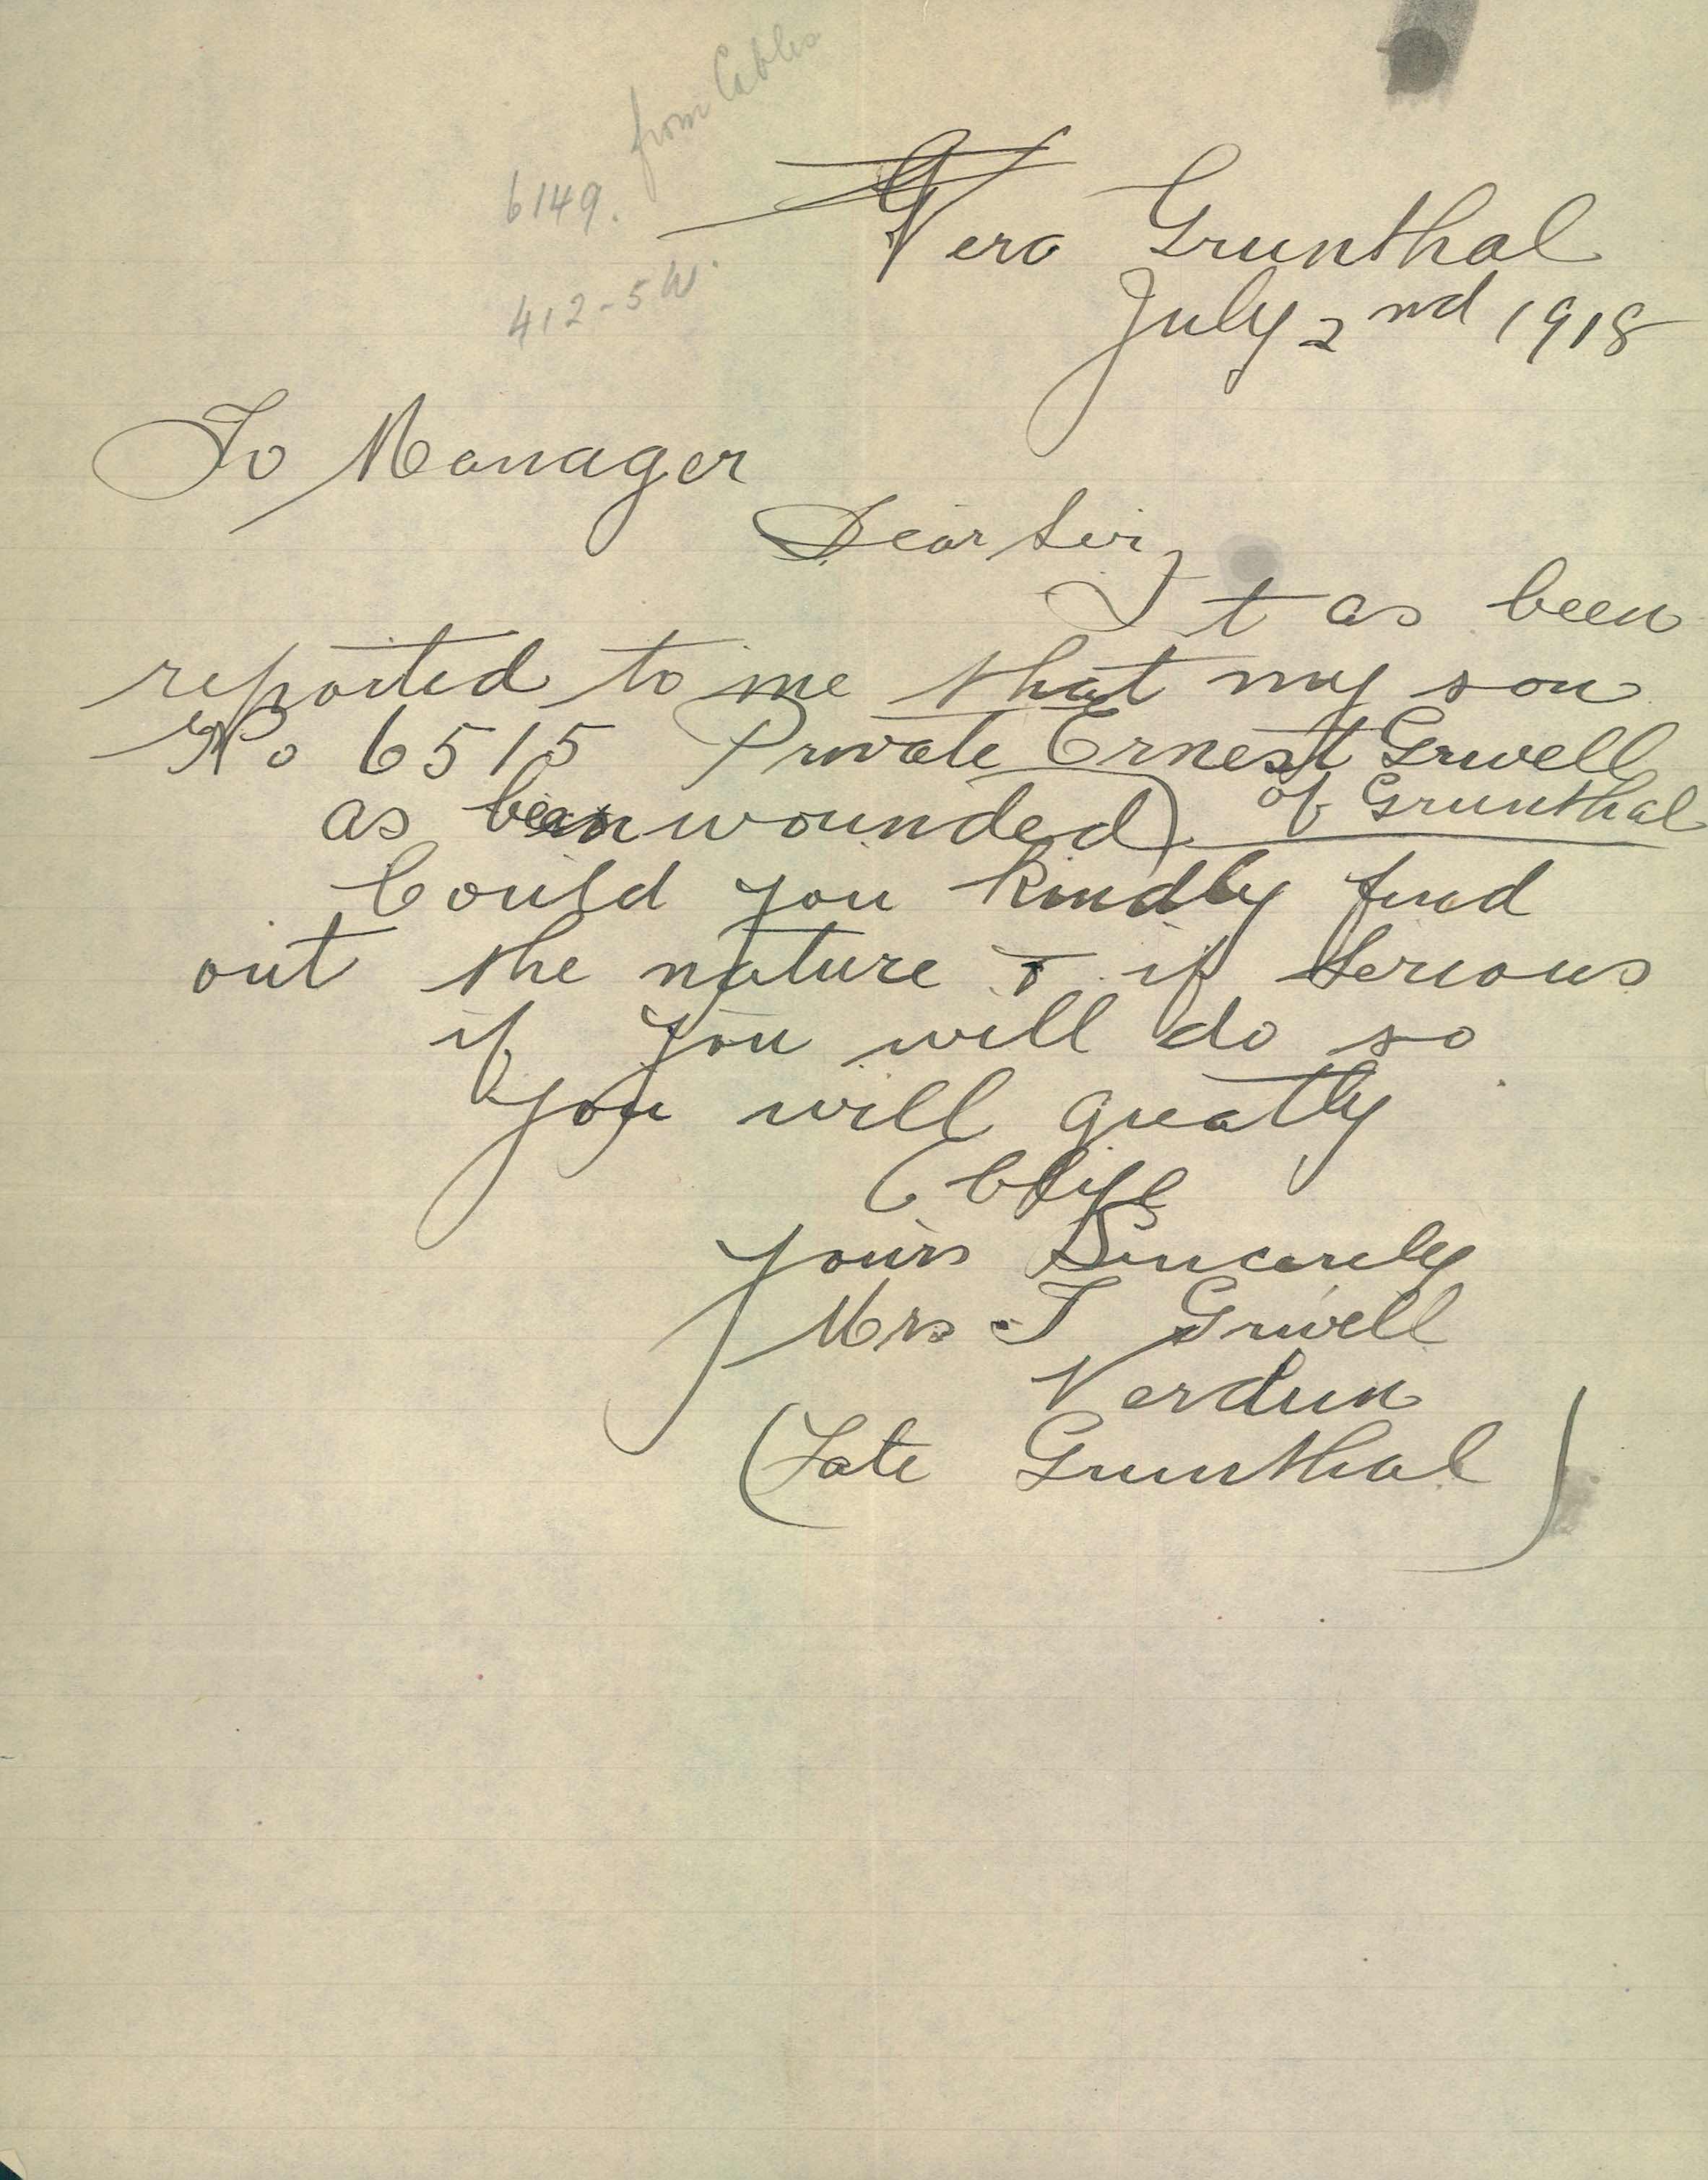 from Cables
6149.
412-5W.
Vera Grunthal
July 2nd 1918
To Manager
Dear Sir,
It as been
reported to me that my son
No 6515 Private Ernest Grivell
of Grunthal
as been wounded
Could you kindly find
out the nature & if serious
if you will do so
you will greatly
Oblige
yours Sincerely
Mrs T Grivell
Verdun
(Late Grunthal)